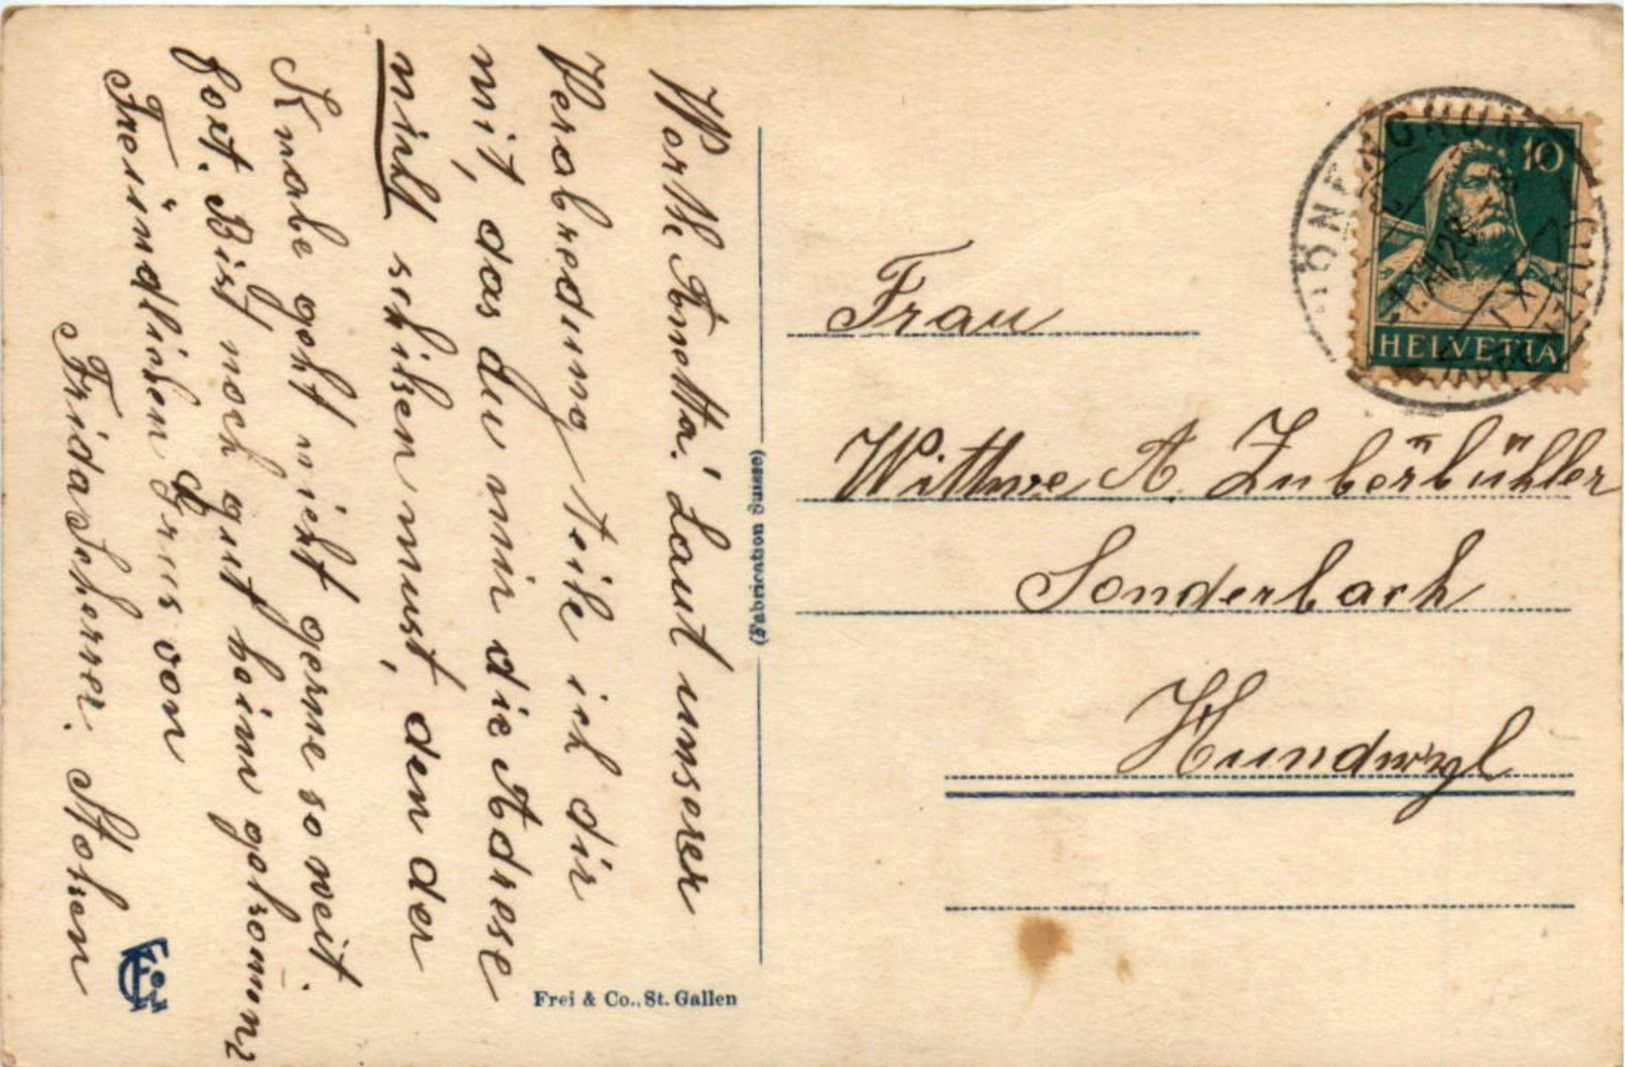 Werthe Anetta! Laut unserer
Verabredung teile ich dir
mit, das du mir die Adresse
nicht schiken must, den der
Knabe geht nicht gerne so weit
fort. Bist noch gut heim gekomm
Freündlichen Grus von
Frida Scherrer. Stohren
Frei & Co., St. Gallen
(Fabrication Suisse)
10
HELVETIA
Frau
Wittwe A. Zuberbühler
Sonderbach
Hundwyl